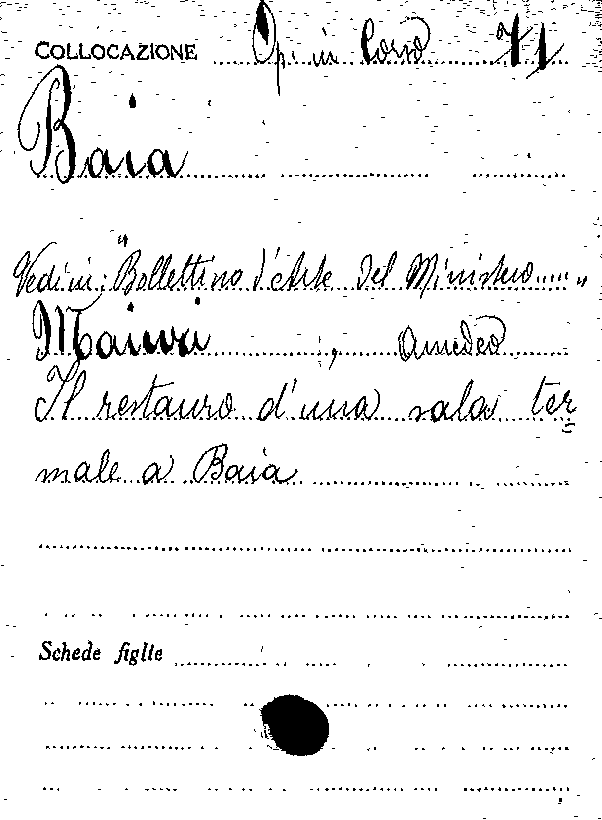 COLLOCAZIONE Op. in Corso 71
Baia
Vedi in: "Bollettino d'Arte del Ministero ....."
Maiuri, Amedeo
Il restauro d'una sala ter
male a Baia
Schede figlie